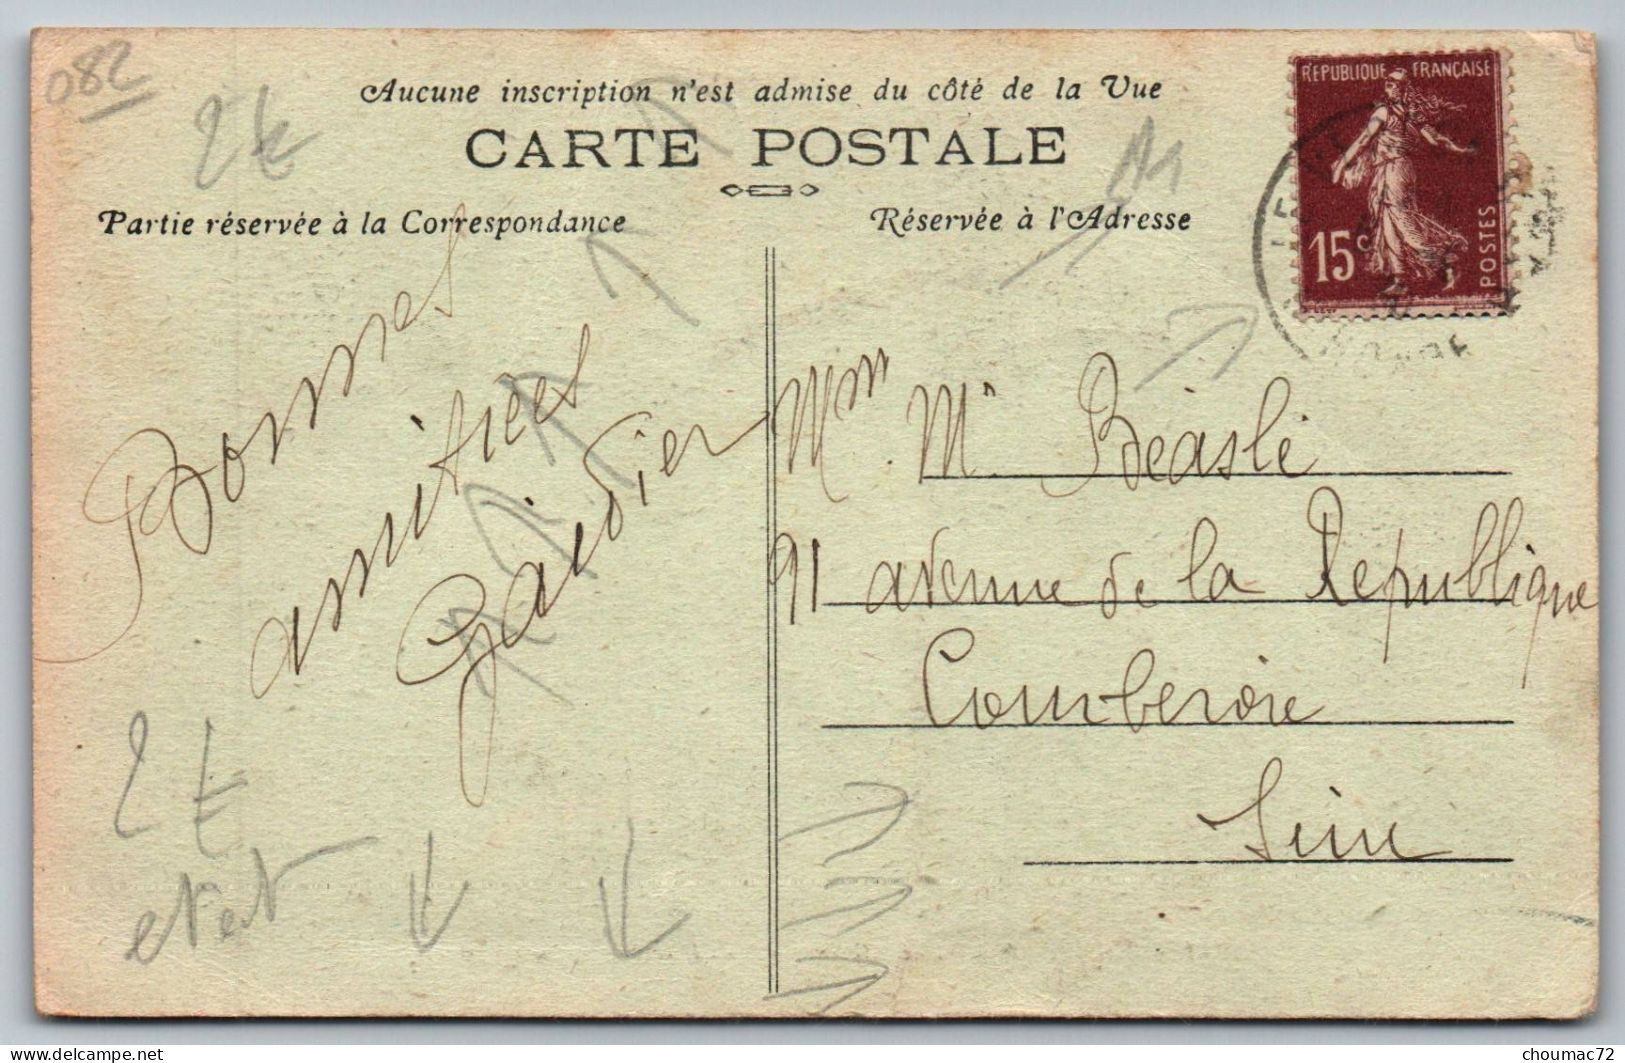 082
2 €
Aucune inscription n'est admise du côté de la Vue
CARTE POSTALE
Partie réservée à la Correspondance
Réservée à l'Adresse
RÉPUBLIQUE FRANÇAISE
15c
POSTES
Bonnes
amitiées
Gaudier
Mme M. Béaslé
91 avenue de la Republique
Courbevoie
Seine
2 €
etat
delcampe.net
choumac72